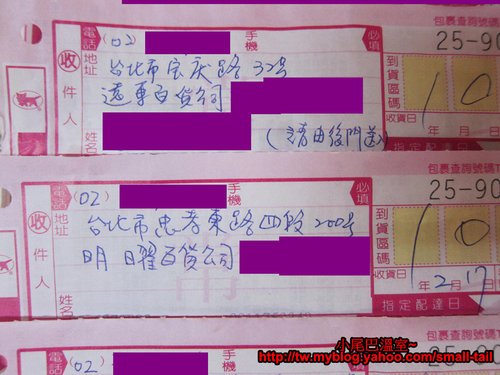 包裹查詢號碼
電話
(02)
手機
必填
25-90
收件人
地址
台北市宝庆路32号
遠東百貨公司
到貨區碼
10
姓名
(請由後門送)
收貨日
年 月
指定配達日
包裹查詢號碼
電話
(02)
手機
必填
25-90
收件人
地址
台北市忠孝東路四段200号
明曜百貨公司
到貨區碼
10
姓名
收貨日
2 17
年 月
指定配達日
包裹查詢號碼
電話
(02)
手
25-90
小尾巴溫室~
http://tw.myblog.yahoo.com/small-tail